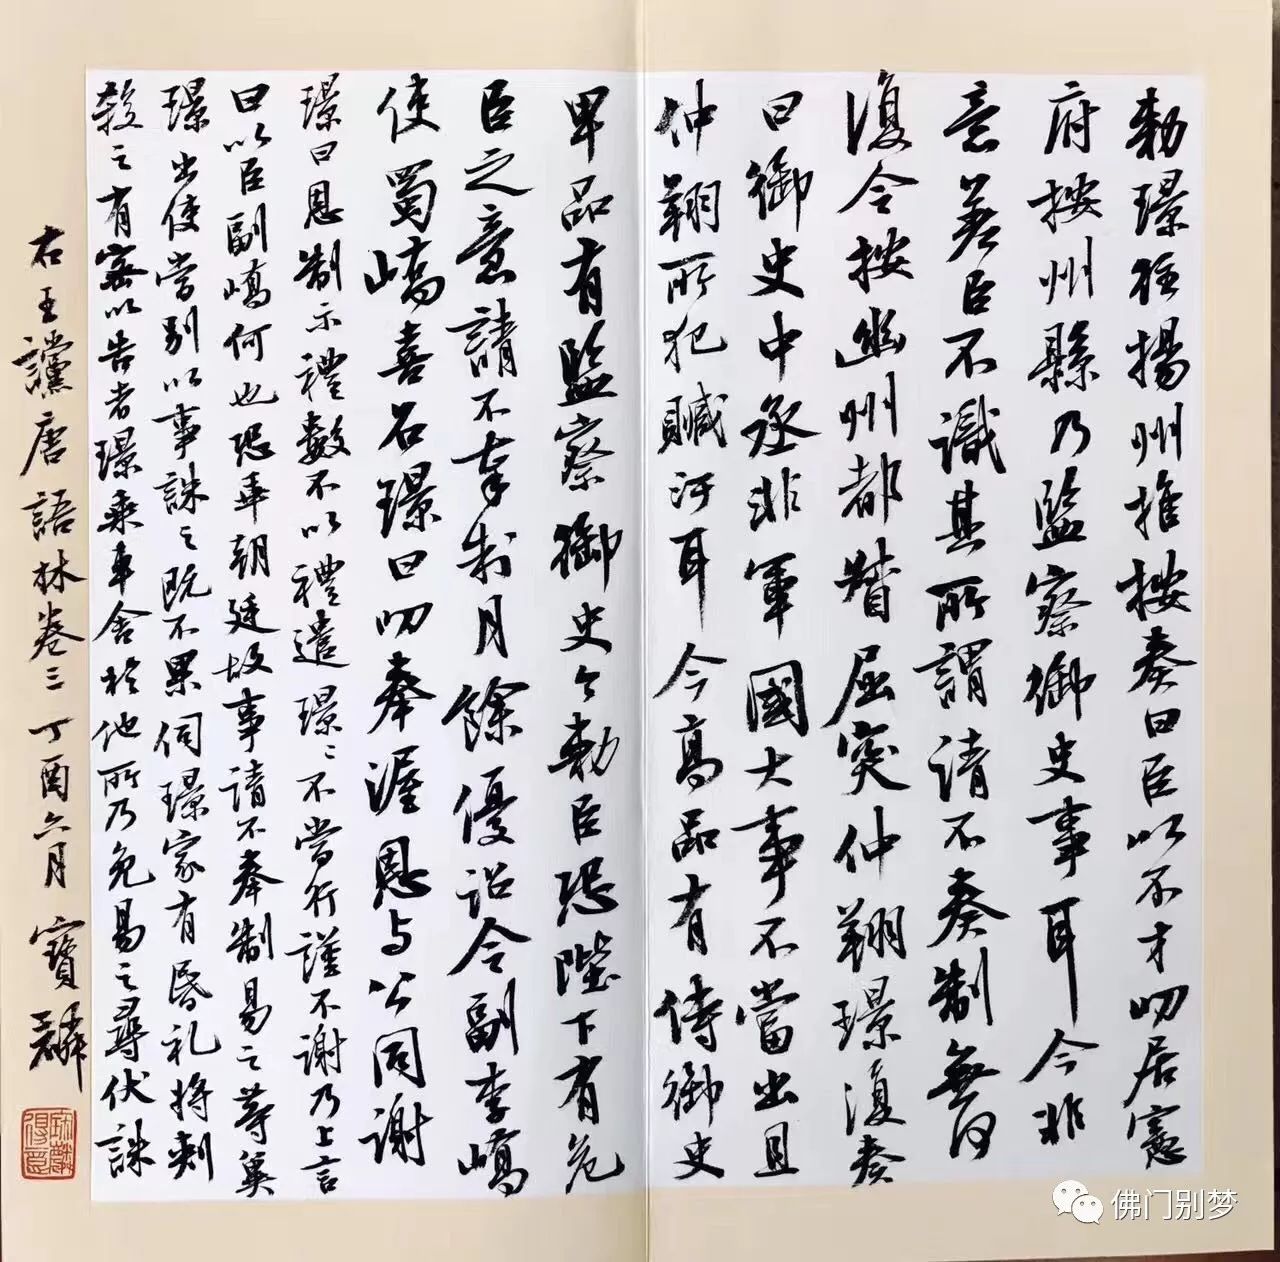 敕璟往揚州推按奏曰臣以不才叨居憲
府按州縣乃監察御史事耳今非
意差臣不識其所謂請不奏制無何
復令按幽州都督屈突仲翔璟復奏
曰御史中丞非軍國大事不當出且
仲翔所犯贓污耳今高品有侍御史
卑品有監察御史今敕臣恐陛下有危
臣之意請不奉制月餘優詔令副李嶠
使蜀嶠喜召璟曰叨奉渥恩与公同謝
璟曰恩制示禮數不以禮遣璟不當行謹不謝乃上言
曰以臣副嶠何也恐乖朝廷故事請不奉制易之等冀
璟出使當别以事誅之既不果伺璟家有昏礼將刺
殺之有密以告者璟乘車舍於他所乃免易之尋伏誅
右王讜唐語林卷三丁酉六月寶麟
佛门别梦